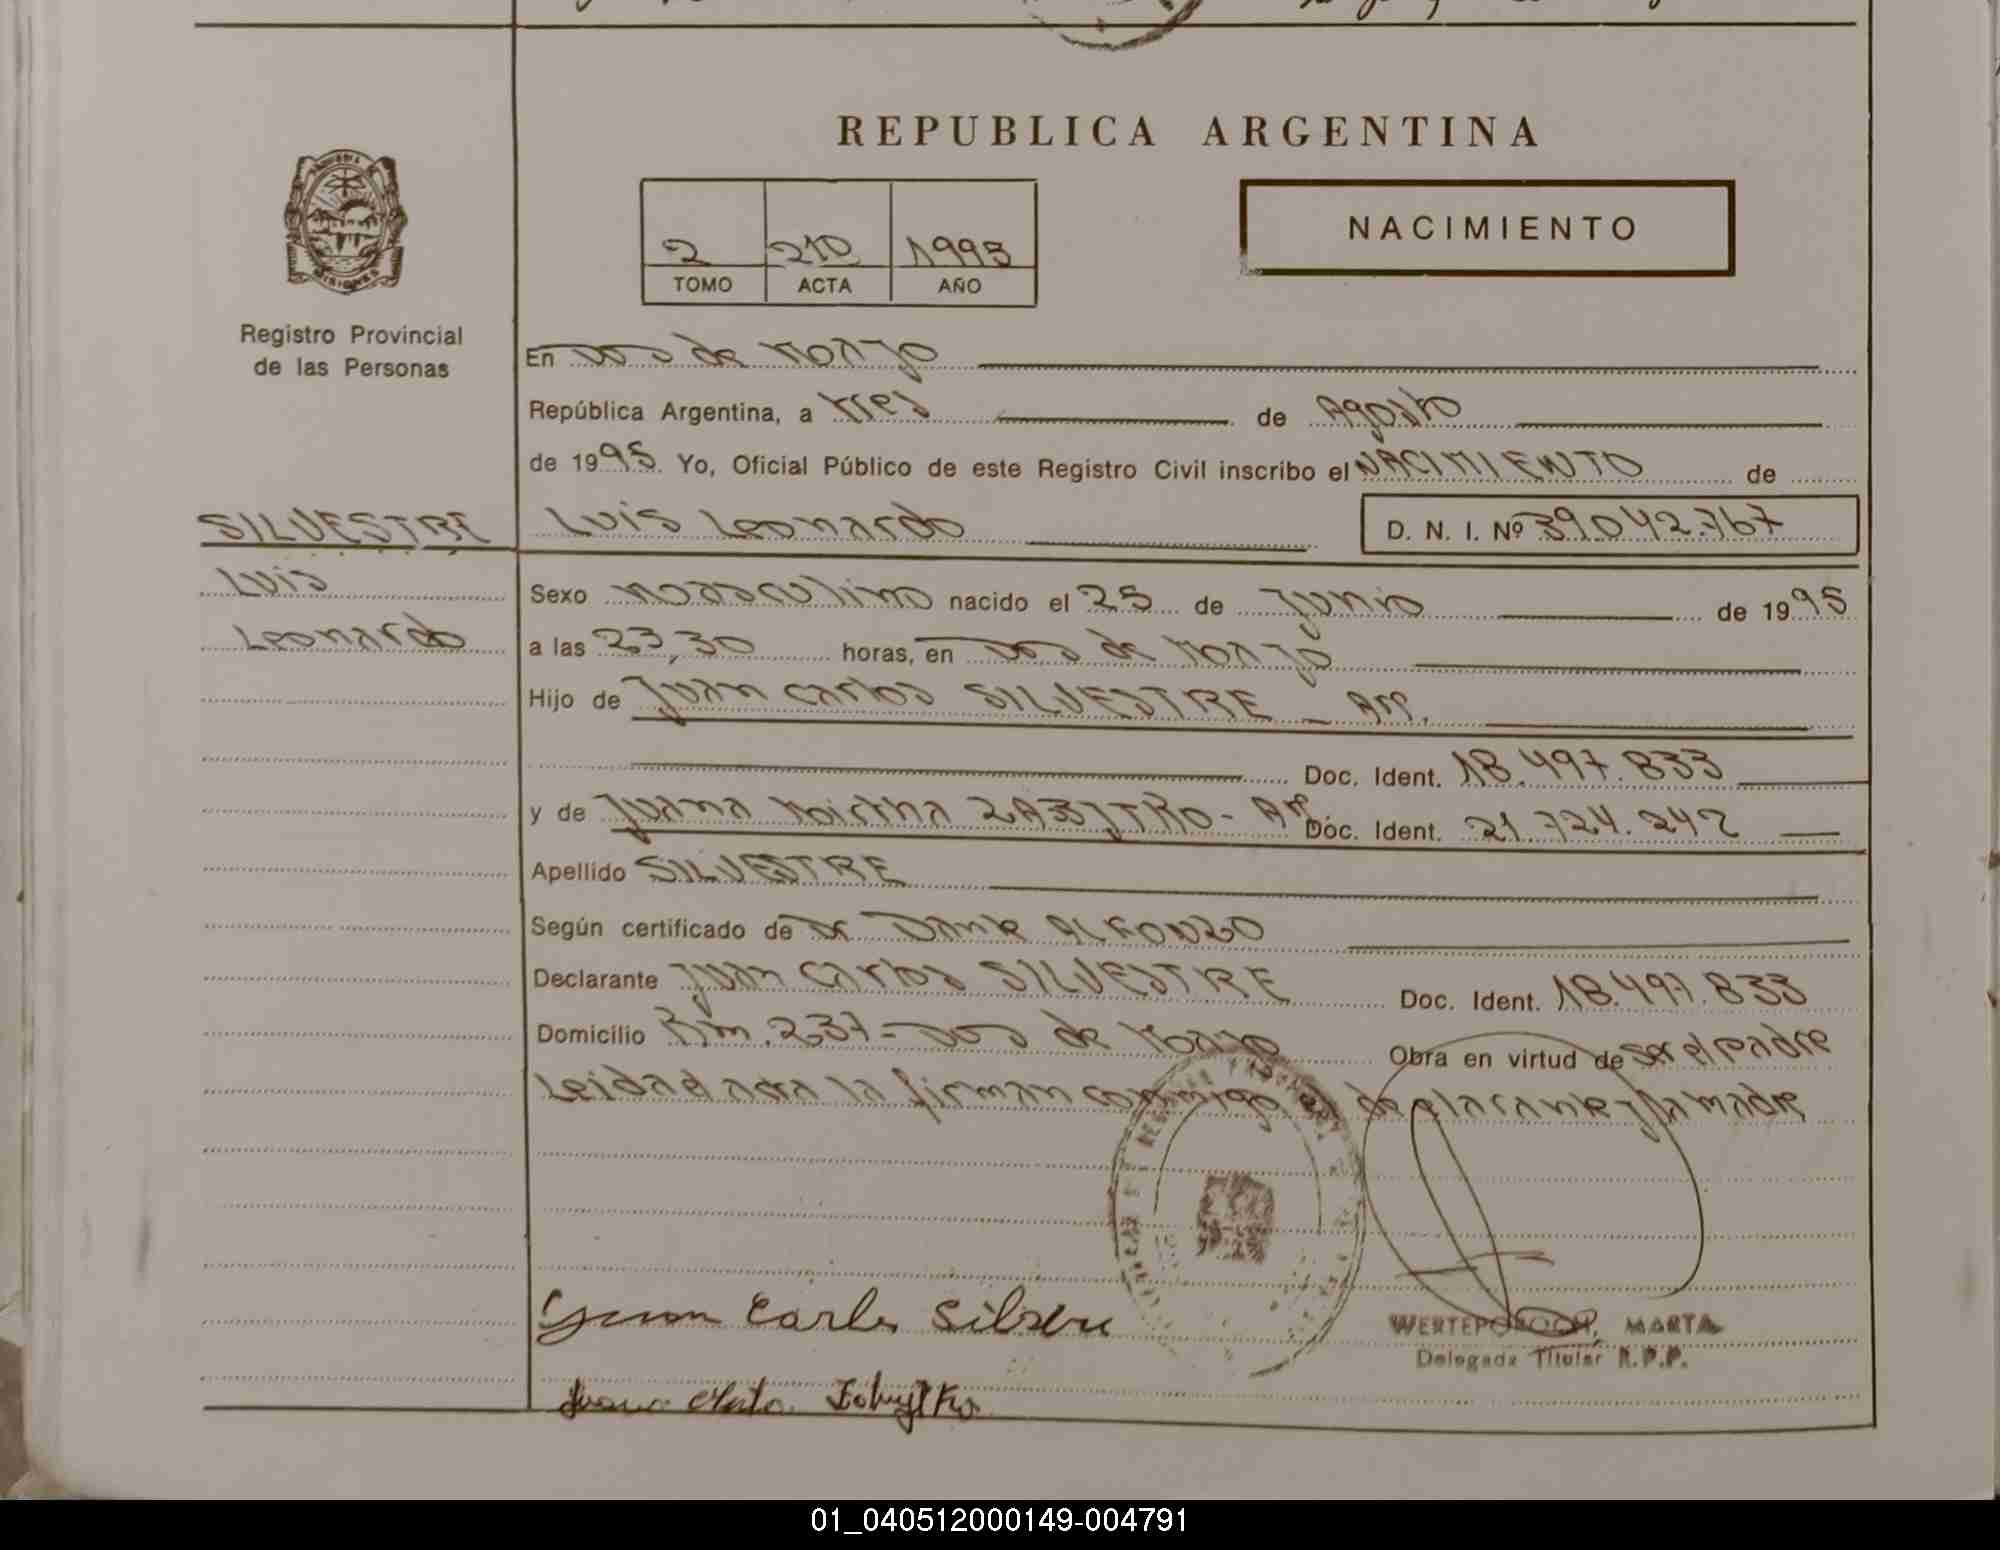 REPUBLICA ARGENTINA
NACIMIENTO
2 210 1995
TOMO ACTA AÑO
Registro Provincial
de las Personas
En Dos de Mayo
República Argentina, a tres de Agosto
de 1995. Yo, Oficial Público de este Registro Civil inscribo el NACIMIENTO de
SILVESTRE
Luis Leonardo D. N. I. Nº 39.042.767
Luis
Leonardo
Sexo masculino nacido el 25 de Junio de 1995
a las 23,30 horas, en Dos de Mayo
Hijo de Juan Carlos SILVESTRE - Arg.
Doc. Ident. 18.497.833
y de Juana Mirtha - Arg. Doc. Ident. 21.724.242
Apellido SILVESTRE
Según certificado de Dr ALFONZO
Declarante Juan Carlos SILVESTRE Doc. Ident. 18.497.833
Domicilio Km. 237 = Dos de Mayo Obra en virtud de ser el padre
Leida el acta la firman conmigo el declarante y la madre
Juan Carlos
Juana
MARTA
Delegada Titular R.P.P.
01_040512000149-004791